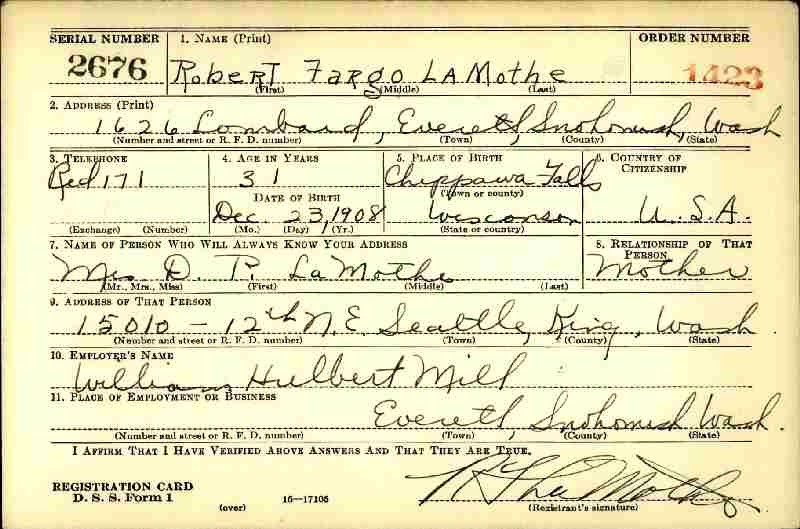 SERIAL NUMBER 1. NAME (Print) ORDER NUMBER
2676 Robert Fargo LaMothe 1423
(First) (Middle) (Last)
2. ADDRESS (Print)
1626 Lombard, Everett, Snohomish, Wash
(Number and street or R. F. D. number) (Town) (County) (State)
3. TELEPHONE 4. AGE IN YEARS 5. PLACE OF BIRTH 6. COUNTRY OF CITIZENSHIP
Red 171 31 Chippawa Falls
DATE OF BIRTH (Town or county)
Dec. 23, 1908 Wisconson U.S.A.
(Exchange) (Number) (Mo.) (Day) (Yr.) (State or country)
7. NAME OF PERSON WHO WILL ALWAYS KNOW YOUR ADDRESS 8. RELATIONSHIP OF THAT PERSON
Mrs D. P. LaMothe Mother
(Mr., Mrs., Miss) (First) (Middle) (Last)
9. ADDRESS OF THAT PERSON
15010 - 12th N.E. Seattle, King, Wash.
(Number and street or R. F. D. number) (Town) (County) (State)
10. EMPLOYER'S NAME
William Hulbert Mill
11. PLACE OF EMPLOYMENT OR BUSINESS
Everett, Snohomish Wash.
(Number and street or R. F. D. number) (Town) (County) (State)
I AFFIRM THAT I HAVE VERIFIED ABOVE ANSWERS AND THAT THEY ARE TRUE.
REGISTRATION CARD
D. S. S. Form 1 (over) 16—17105 (Registrant's signature)